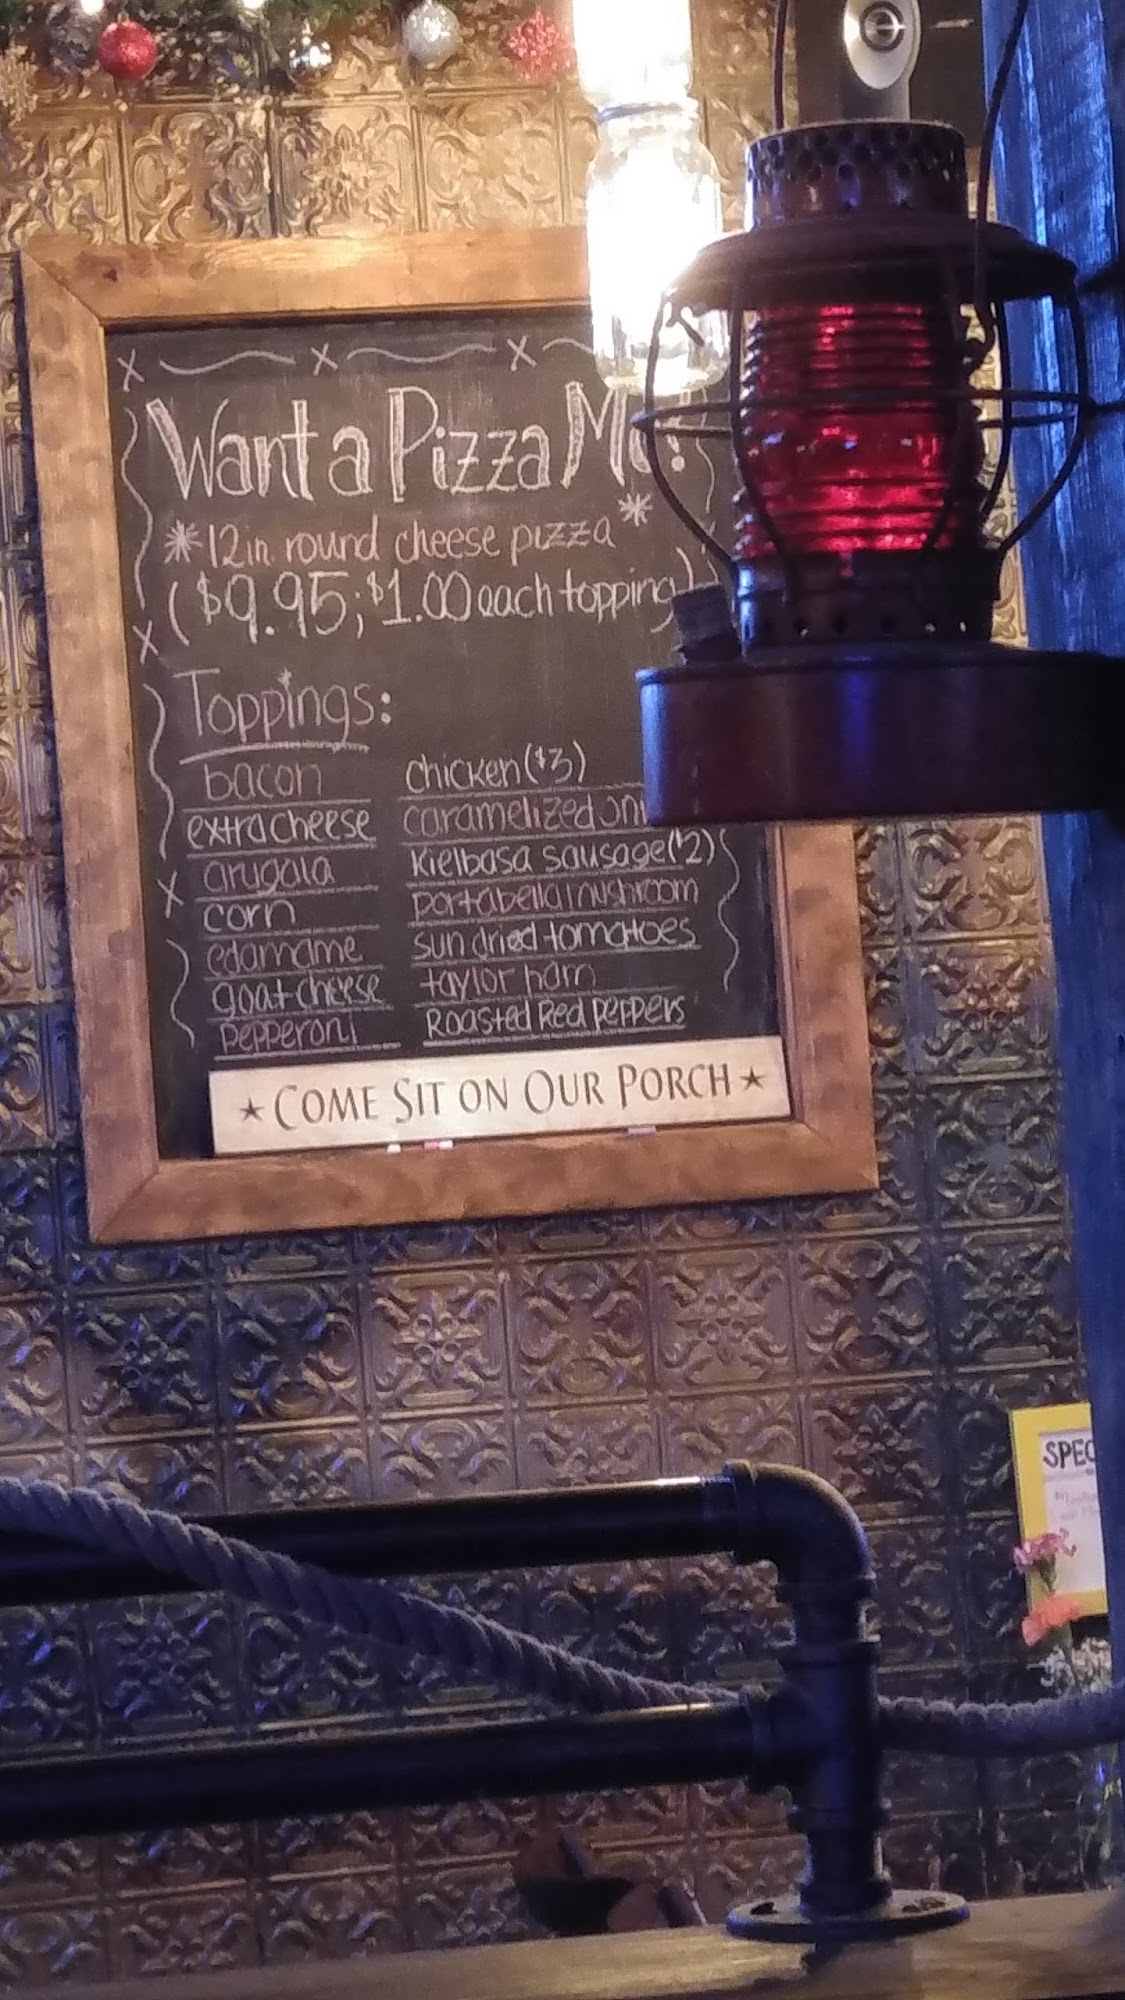 Want a Pizza Me!
*12in round cheese pizza*
($9.95; $1.00 each topping)
Toppings:
bacon
extra cheese
arugala
corn
edamame
goat cheese
pepperoni
chicken ($3)
caramelized
kielbasa sausage ($2)
portabella mushroom
sun dried tomatoes
taylor ham
Roasted Red Peppers
★ COME SIT ON OUR PORCH ★
SPEC